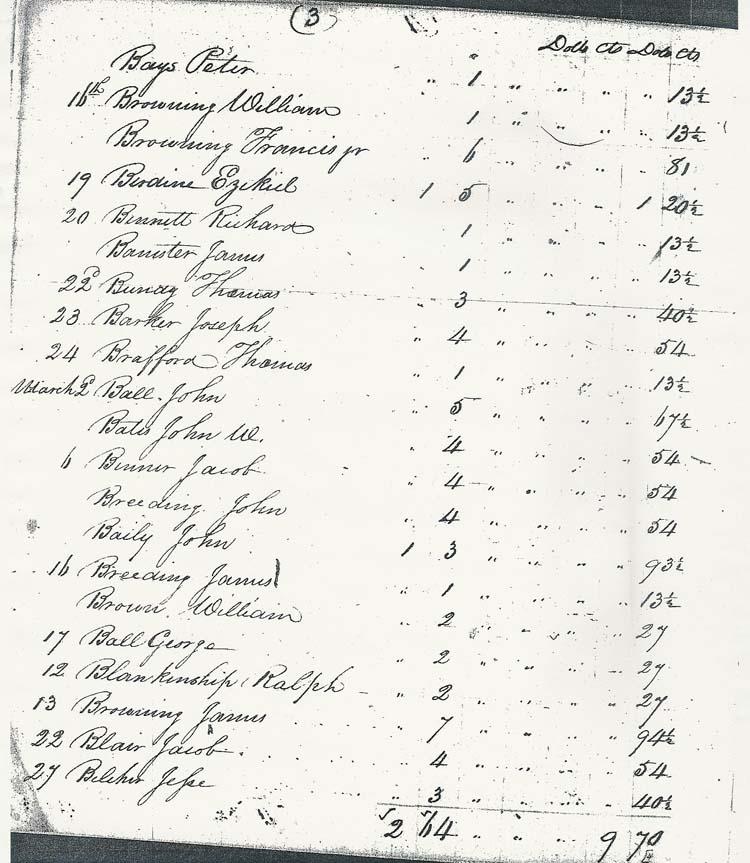 (3)
Dolls Cts Dols Cts
Bays Peter " 1 " " " " 13½
16th Browning William 1 " " " " 13½
Browning Francis jr " 6 " " " " 81
19 Berdine Ezikiel 1 5 " " " 1 20½
20 Bennett Richard 1 " " " " 13½
Banister James 1 " " " " 13½
22d Bunday Thomas 3 " " " " 40½
23 Barker Joseph " 4 " " " " 54
24 Brafford Thomas " 1 " " " " 13½
March 2d Ball John " 5 " " " " 67½
Bates John W. " 4 " " " " 54
6 Benner Jacob " 4 " " " " 54
Breeding John " 4 " " " " 54
Baily John 1 3 " " " " 93½
16 Breeding James " 1 " " " " 13½
Brown William " 2 " " " 27
17 Ball George " 2 " " " " 27
12 Blankinship Ralph " 2 " " " " 27
13 Browning James " 7 " " " " 94½
22 Blair Jacob " 4 " " " " 54
27 Belcher Jesse " 3 " " " " 40½
2 64 " " " 9 70